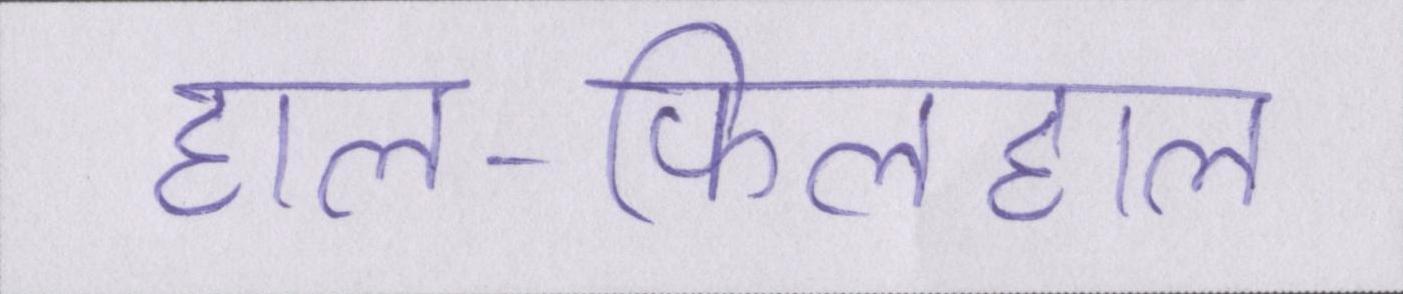 हाल-फिलहाल